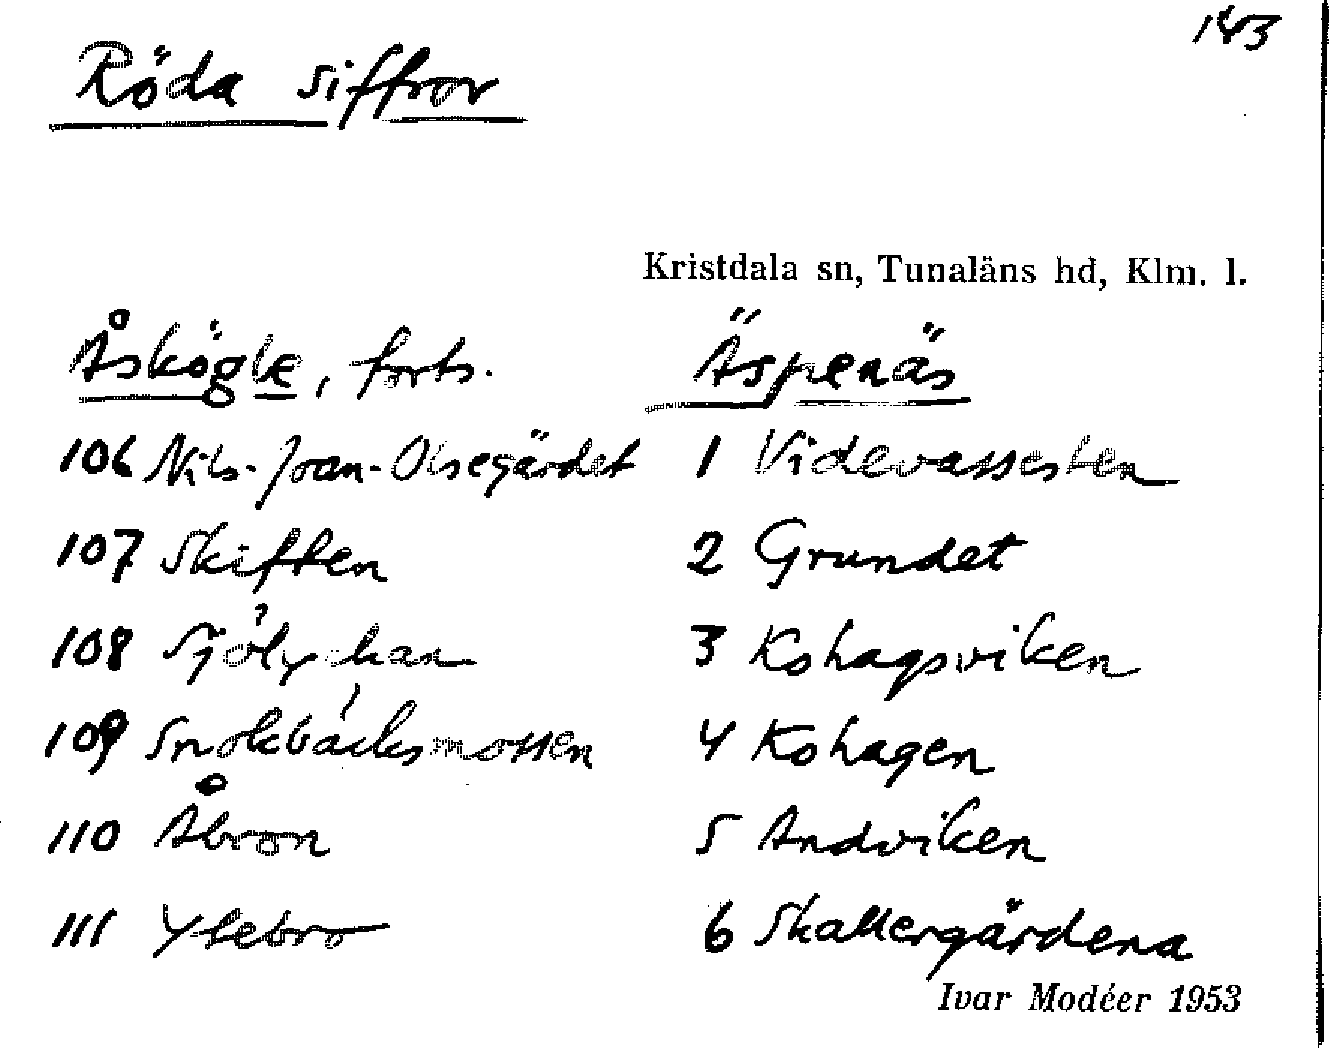 143
Röda siffror
Kristdala sn, Tunaläns hd, Klm. l.
Åskögle, forts.
106 Nils-Joan-Olsegärdet
107 Skiften
108 Sjölyckan
109 Snokbäcksmossen
110 Åbron
111 Ylebro
Äspenäs
1 Videvassesten
2 Grundet
3 Kohagsviken
4 Kohagen
5 Andviken
6 Skallergärdena
Ivar Modéer 1953